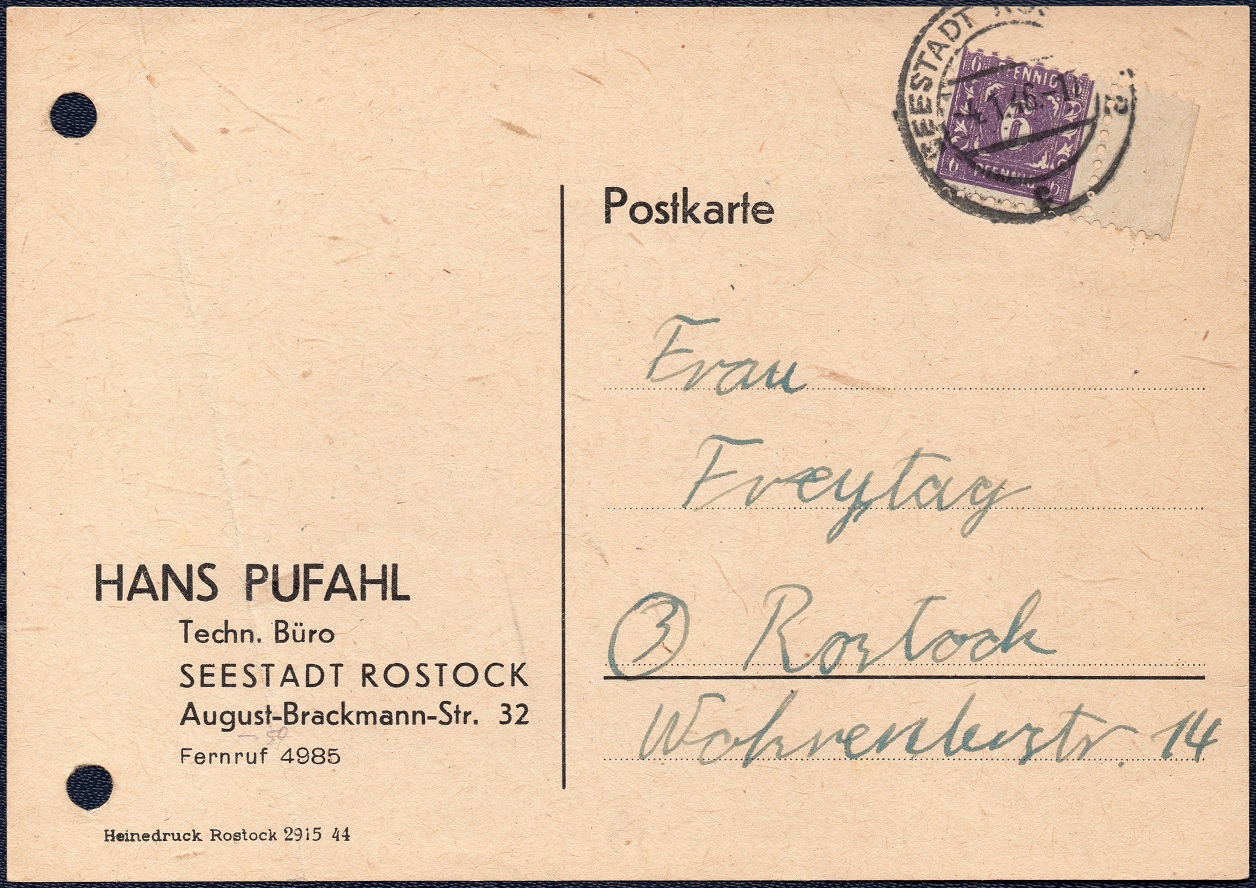 SEESTADT
6 PFENNIG
4.1.46.-1
6
6 PFENNIG 6
2
Postkarte
Frau
Freytag
③ Rostock
14
HANS PUFAHL
Techn. Büro
SEESTADT ROSTOCK
August-Brackmann-Str. 32
Fernruf 4985
Heinedruck Rostock 2915 44